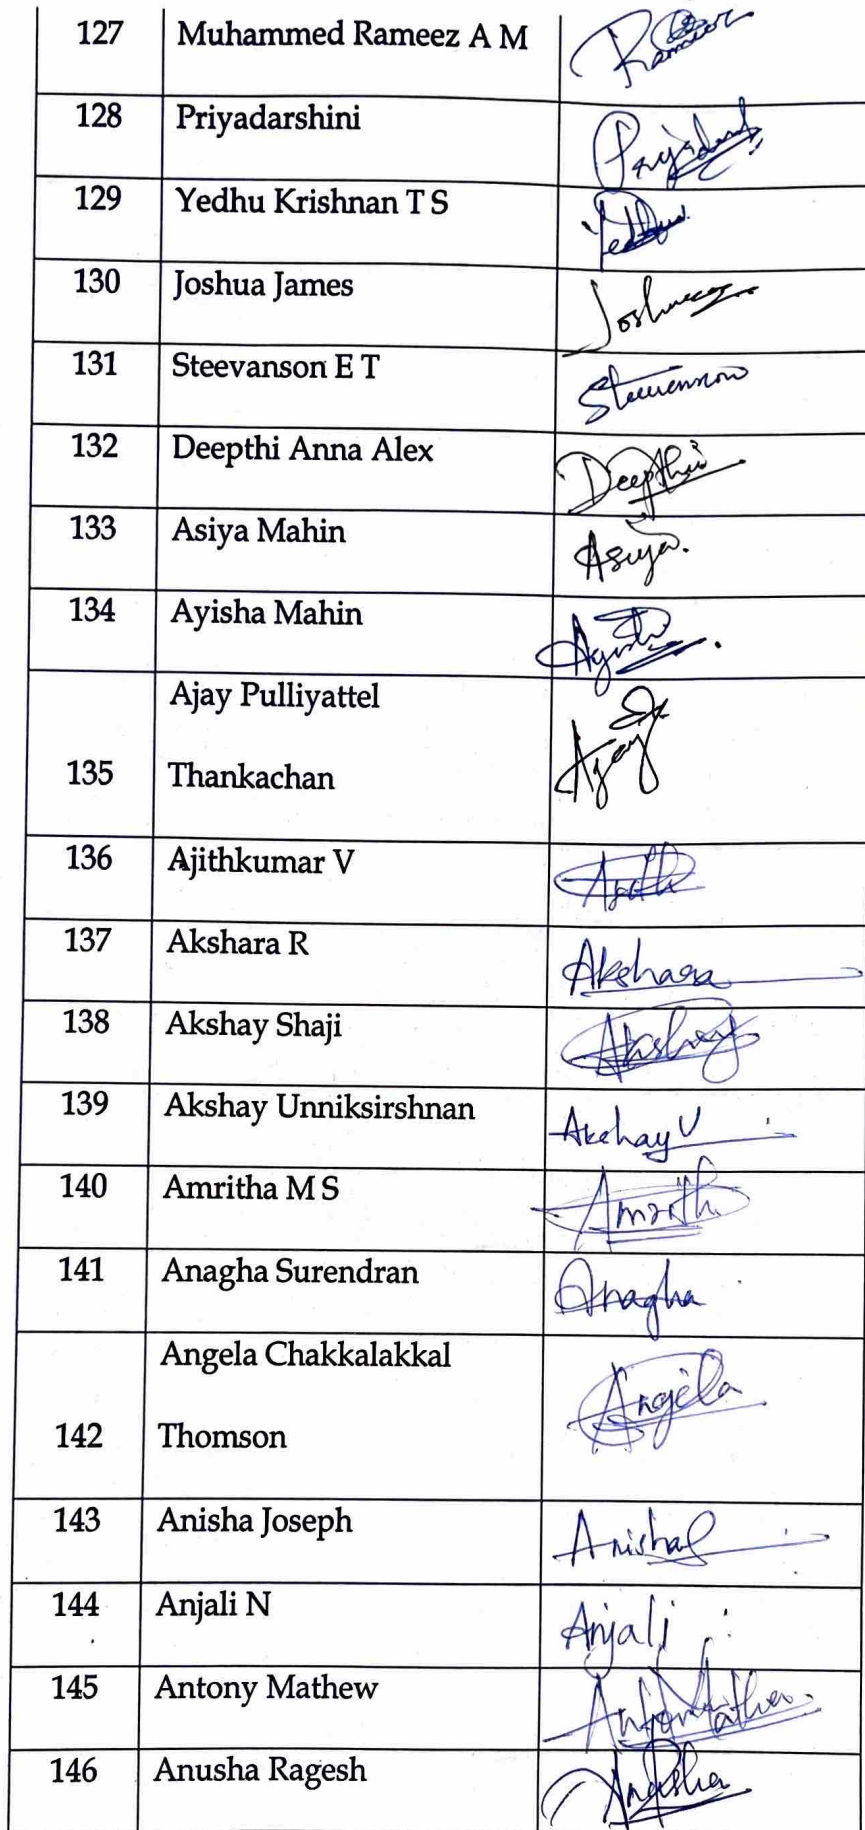 127 Muhammed Rameez A M Rameez
128 Priyadarshini
129 Yedhu Krishnan T S
130 Joshua James Joshua
131 Steevanson E T Steevenson
132 Deepthi Anna Alex Deepthi
133 Asiya Mahin Asiya.
134 Ayisha Mahin
Ajay Pulliyattel
135 Thankachan Ajay
136 Ajithkumar V
137 Akshara R Akshara
138 Akshay Shaji Akshay
139 Akshay Unniksirshnan Akshay U
140 Amritha M S Amrith
141 Anagha Surendran Anagha
Angela Chakkalakkal
142 Thomson Angela
143 Anisha Joseph Anisha
144 Anjali N Anjali
145 Antony Mathew Antony Mathew
146 Anusha Ragesh Anusha